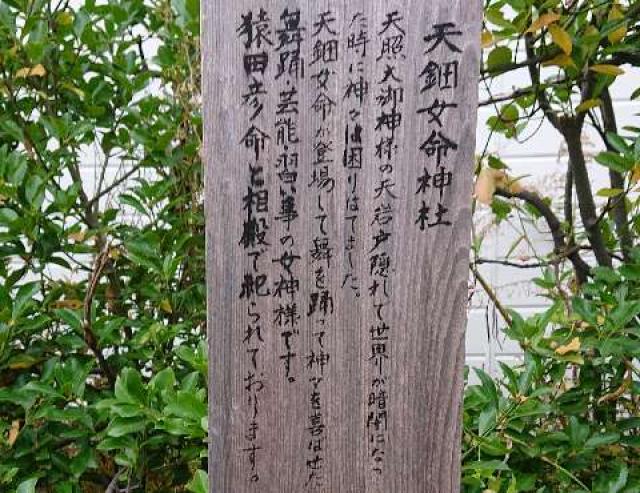 天鈿女命神社
天照大御神様の天岩戸隠れて世界が暗闇になっ
た時に神々は困りはてました。
天鈿女命が登場して舞を踊って神々を喜ばせた
舞踊芸能習い事の女神様です。
猿田彦命と相殿で祀られております。